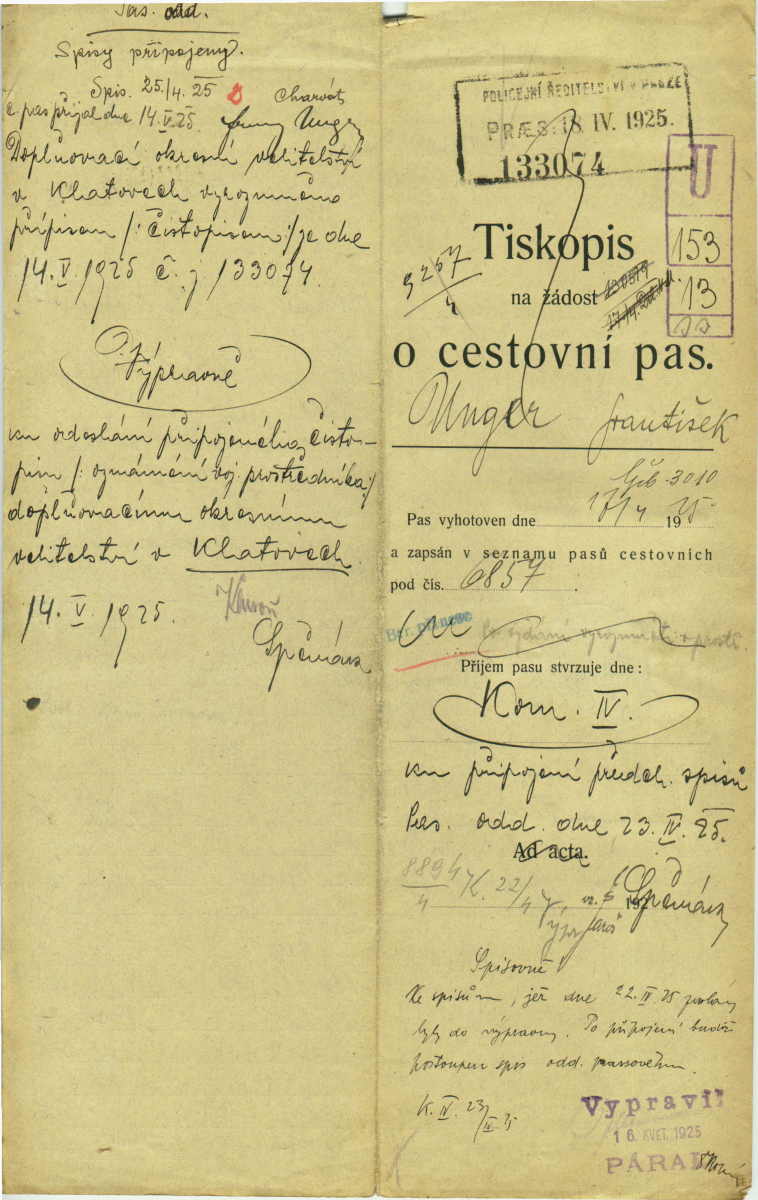 Pas. odd.
Spisy připojeny.
Spis. 25./4. 25 Charvát
C. pas přijal dne 14.V.25. Unger
Doplňovací okresní velitelství
v Klatovech vyrozuměno
přípisem /: čistopisem :/ ze dne
14. V. 1925 č. j. 133074.
O.
Výpravně
ku odeslání připojeného čisto-
pisu /: oznámení voj. prostředníka :/
doplňovacímu okresnímu
velitelství v Klatovech.
14. V. 1925.
POLICEJNÍ ŘEDITELSTVÍ V PRAZE
PRÆS. 18. IV. 1925.
133074
U
153
13
Tiskopis
9257/4
na žádost
o cestovní pas.
Unger František
3010
Pas vyhotoven dne 17/4 1925
a zapsán v seznamu pasů cestovních
pod čís. 6857.
Příjem pasu stvrzuje dne:
Kom. IV.
ku připojení předch. spisů
Pas. odd. dne 23. IV. 25.
Ad acta.
889/4 K. 22/4 192
Spisovně
Ke spisům, jež dne 22. IV. 25 poslány
byly do výpravny. Po připojení budiž
postoupen spis odd. passovému.
K. IV. 23/IV. 25
Vypravil
16. KVĚT. 1925